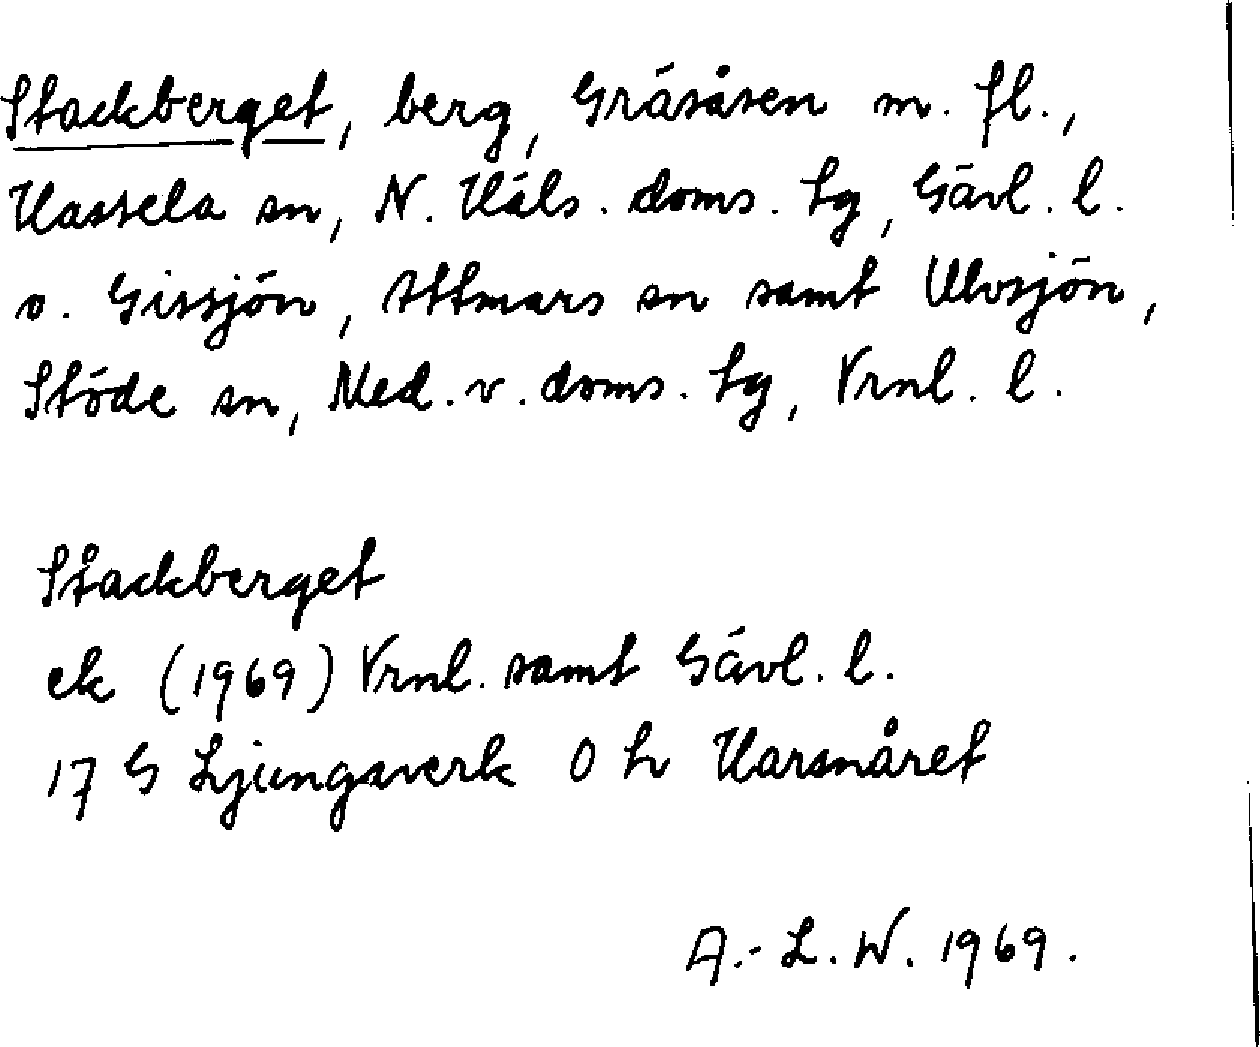 Stackberget, berg, Gräsåsen m. fl.,
Hassela sn, N. Häls. doms. tg, Gävl. l.
o. Gissjön, Attmars sn samt Ulvsjön,
Stöde sn, Med. v. doms. tg, Vrnl. l.
Stackberget
ek (1969) Vrnl. samt Gävl. l.
17 G Ljungaverk O h Harsnåret
A.-L. W. 1969.